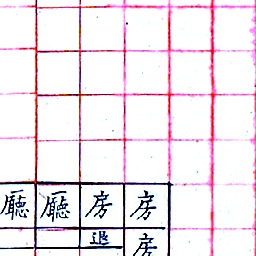 廳 廳 房 房
退 房